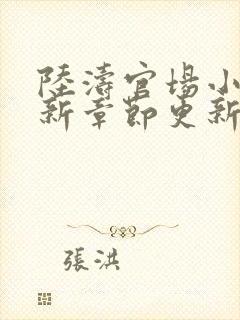 陸濤官場小
新章節更新
張洪